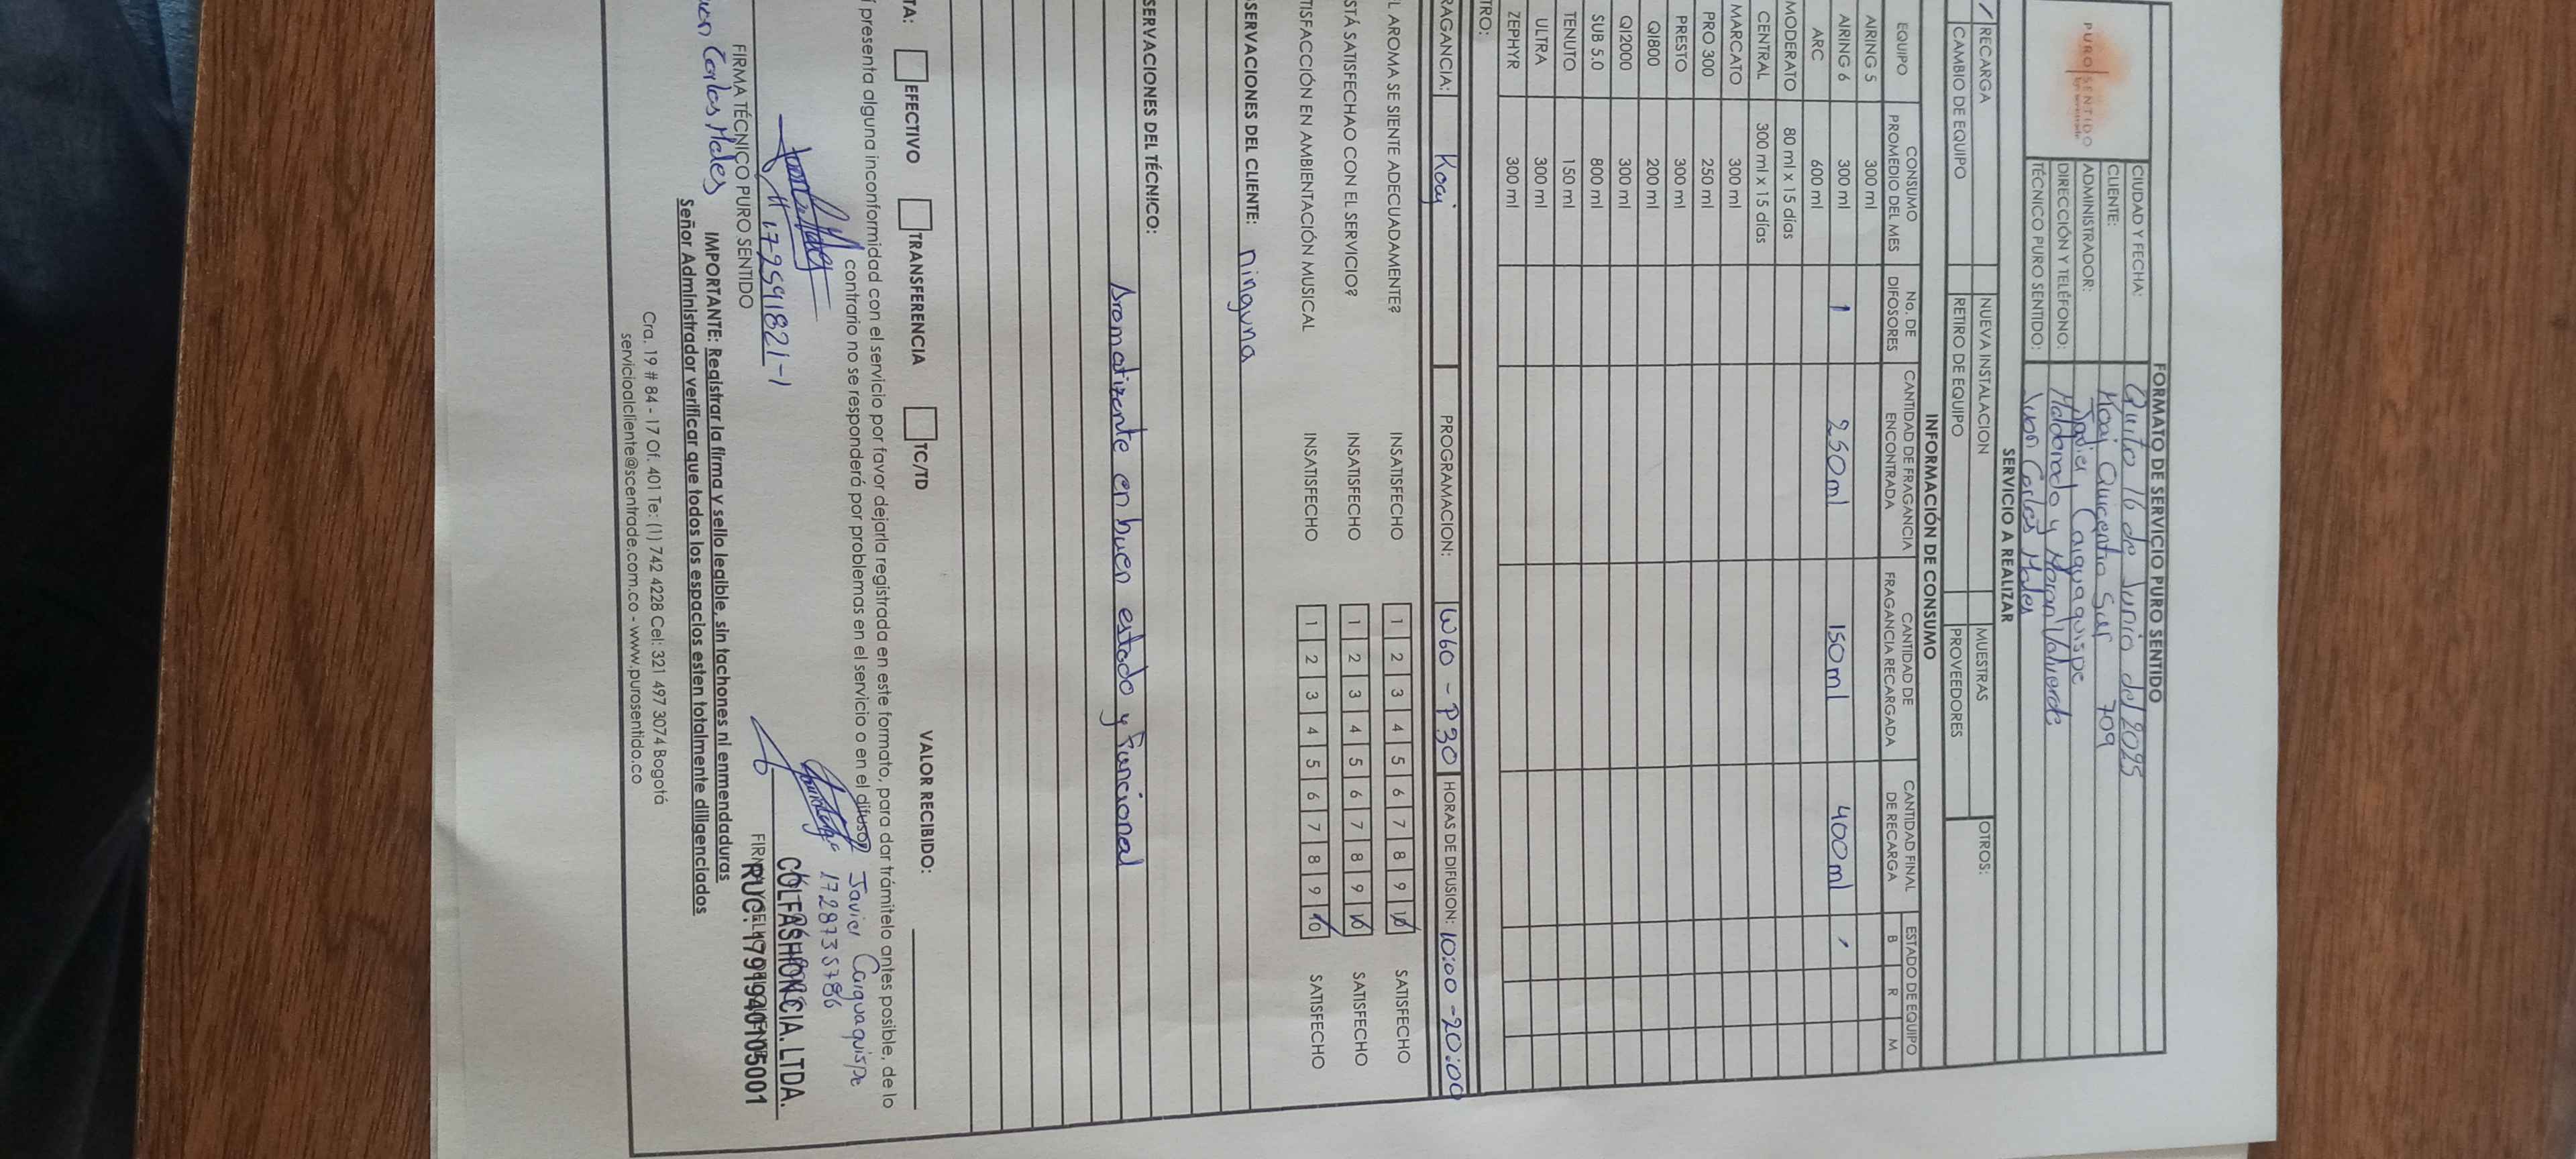 FORMATO DE SERVICIO PURO SENTIDO
PURO SENTIDO
by Scentrade
CIUDAD Y FECHA: Quito 16 de Junio del 2025
CLIENTE: Koaj Quicentro Sur 709
ADMINISTRADOR: Javier Caiguaquispe
DIRECCIÓN Y TELÉFONO: Maldonado y Moran Valverde
TÉCNICO PURO SENTIDO: Juan Carlos Males
SERVICIO A REALIZAR
/ RECARGA NUEVA INSTALACION MUESTRAS OTROS:
CAMBIO DE EQUIPO RETIRO DE EQUIPO PROVEEDORES
INFORMACIÓN DE CONSUMO
EQUIPO CONSUMO PROMEDIO DEL MES No. DE DIFOSORES CANTIDAD DE FRAGANCIA ENCONTRADA CANTIDAD DE FRAGANCIA RECARGADA CANTIDAD FINAL DE RECARGA ESTADO DE EQUIPO
B R M
AIRING 5 300 ml
AIRING 6 300 ml 1 250ml 150ml 400ml /
ARC 600 ml
MODERATO 80 ml x 15 días
CENTRAL 300 ml x 15 días
MARCATO 300 ml
PRO 300 250 ml
PRESTO 300 ml
QI800 200 ml
QI2000 300 ml
SUB 5.0 800 ml
TENUTO 150 ml
ULTRA 300 ml
ZEPHYR 300 ml
TRO:
RAGANCIA: Koaj PROGRAMACION: W60 - P30 HORAS DE DIFUSION: 10:00 - 20:00
L AROMA SE SIENTE ADECUADAMENTE? INSATISFECHO 1 2 3 4 5 6 7 8 9 10 SATISFECHO
STÁ SATISFECHAO CON EL SERVICIO? INSATISFECHO 1 2 3 4 5 6 7 8 9 10 SATISFECHO
TISFACCIÓN EN AMBIENTACIÓN MUSICAL INSATISFECHO 1 2 3 4 5 6 7 8 9 10 SATISFECHO
SERVACIONES DEL CLIENTE: ninguna
SERVACIONES DEL TÉCNICO:
Aromatizante en buen estado y funcional
TA: EFECTIVO TRANSFERENCIA TC/TD VALOR RECIBIDO:
í presenta alguna inconformidad con el servicio por favor dejarla registrada en este formato, para dar trámitelo antes posible, de lo
contrario no se responderá por problemas en el servicio o en el difusor
Javier Caiguaquispe
1728735786
172591821-1
COLFASHION CIA. LTDA.
RUC: 1791940105001
FIRMA TÉCNICO PURO SENTIDO
Carlos Males
IMPORTANTE: Registrar la firma y sello legible, sin tachones ni enmendaduras
Señor Administrador verificar que todos los espacios esten totalmente diligenciados
Cra. 19 # 84 - 17 Of. 401 Te: (1) 742 4228 Cel: 321 497 3074 Bogotá
servicioalcliente@scentrade.com.co - www.purosentido.co